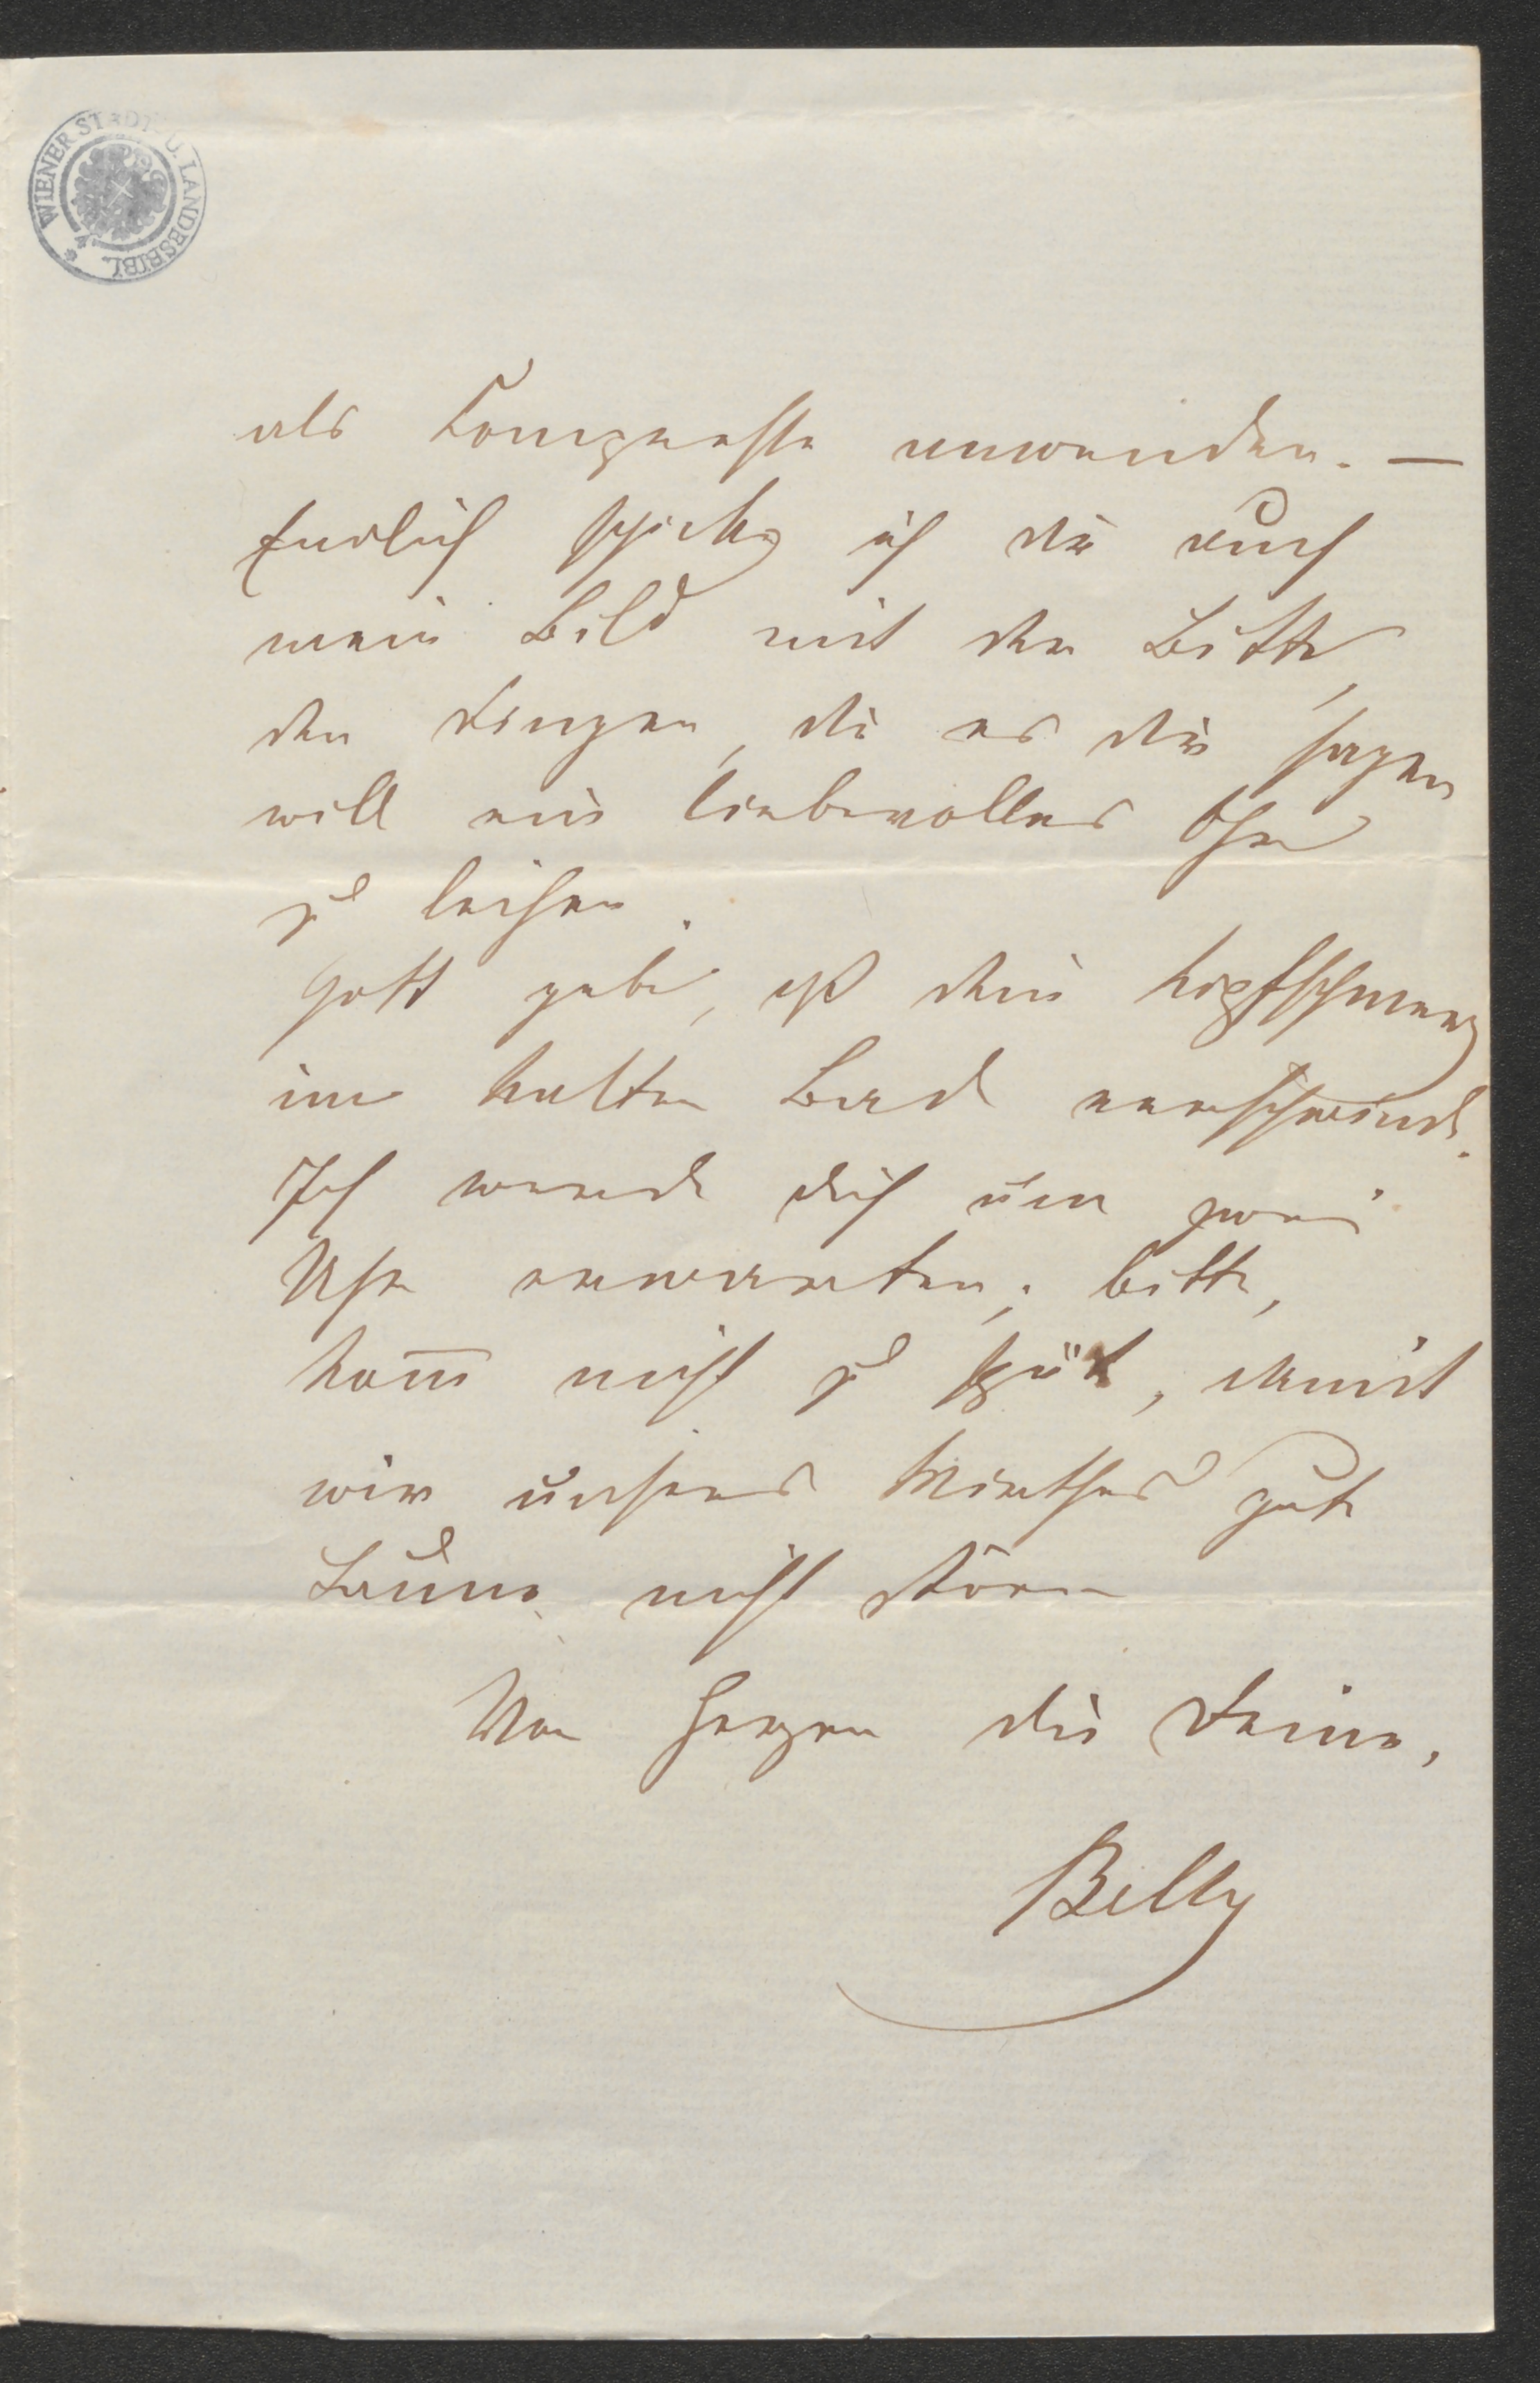 WIENER STADT- U. LANDESBIBL.
als Compresse anwenden. —
Endlich schicke ich dir auch
mein Bild mit der Bitte,
den Dingen, die es dir sagen
will ein liebevolles Ohr
zu leihen.
Gott gebe, daß dein Kopfschmerz
im kalten Bade verschwinde.
Ich werde dich um zwei
Uhr erwarten; bitte,
kom̅ nicht zu spät, damit
wir unseres Wirthes gute
Laune nicht stören
Von Herzen die Deine,
Billy